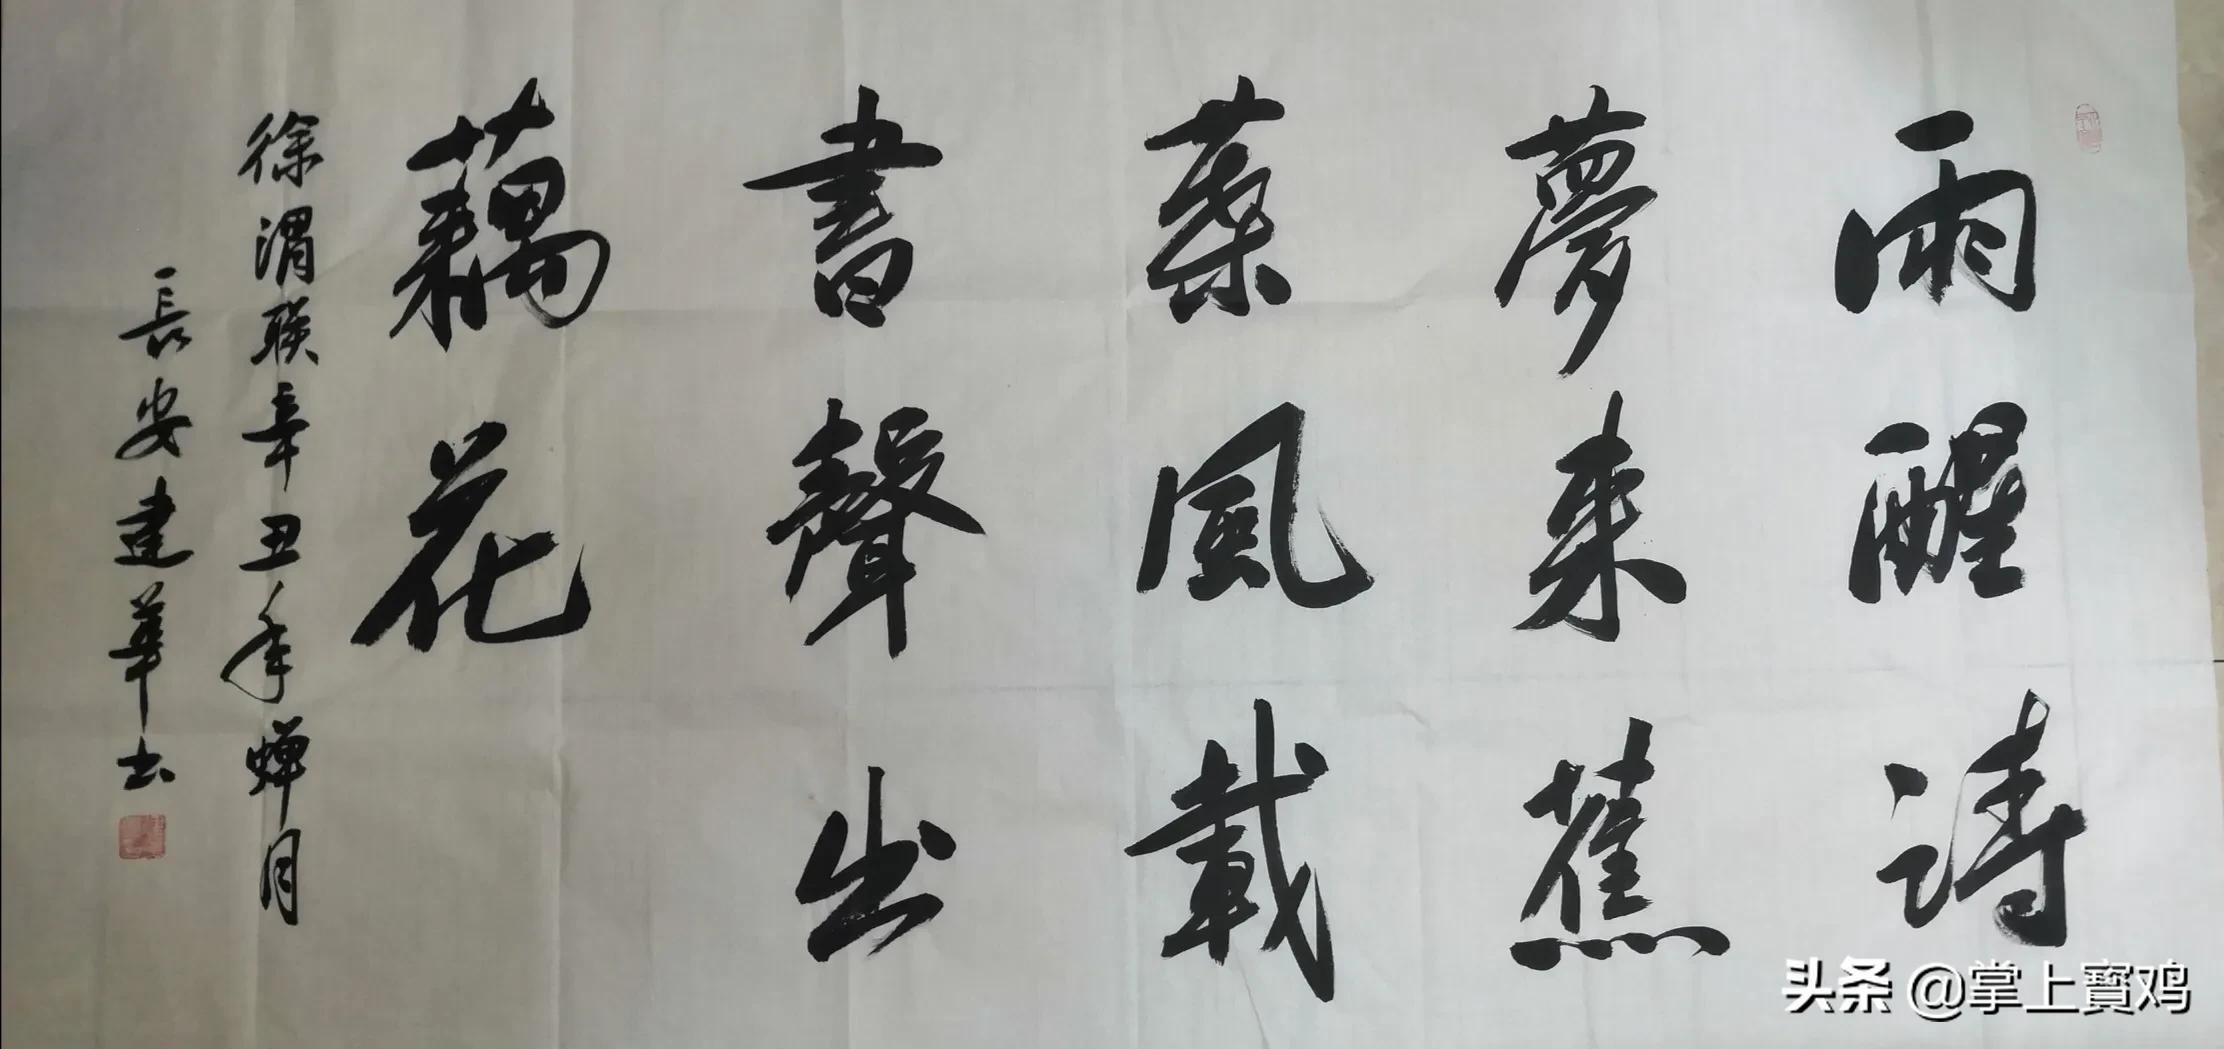 雨醒詩
夢来蕉
葉風載
書聲出
藕花
徐渭联辛丑年蝉月
長安建華书
头条 @掌上寳鸡